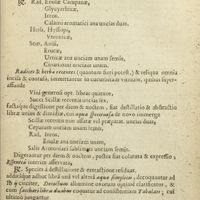 ℞. Rad. Enulæ Campanæ,
Glycyrrhizæ,
Ireos,
Calami aromatici ana uncias duas,
Herb. Hyssopi,
Veronicæ,
Sem. Anisi,
Erucæ,
Urticæ ana unciam unam semis,
Cinamomi unciam unam.
Radices & herbæ recentes (quantum fieri potest,) & reliqua omnia
incisa & contusa, immittantur in cucurbitam vitream, quibus super-
affunde
Vini generosi opt. libras quatuor,
Succi Scillæ recentis uncias sex,
factaque digestione per diem & noctem, fiat destillatio & abstractio
libræ unius & dimidiæ, cui aquæ de novo immerge
Succi Scillæ in aëre aquati vel præparati, uncias duas,
Croci unciam unam,
Rad. Ireos,
Enulæ ana unciam unam,
Salis Armoniaci sublimati unciam semis.
Digerantur per diem & noctem, postea fiat colatura & expressio,
Essentia interim asservata.
℞. Species à destillatione & extractione residuas,
additâque adhuc aquâ simplici, decoquantur ad
& cincitet. Decoctum albumine ovorum optime clarificetur, &
cum sacchari libris duabus coquatur ad consistentiam Tabulati; cui
ultimo jungatur